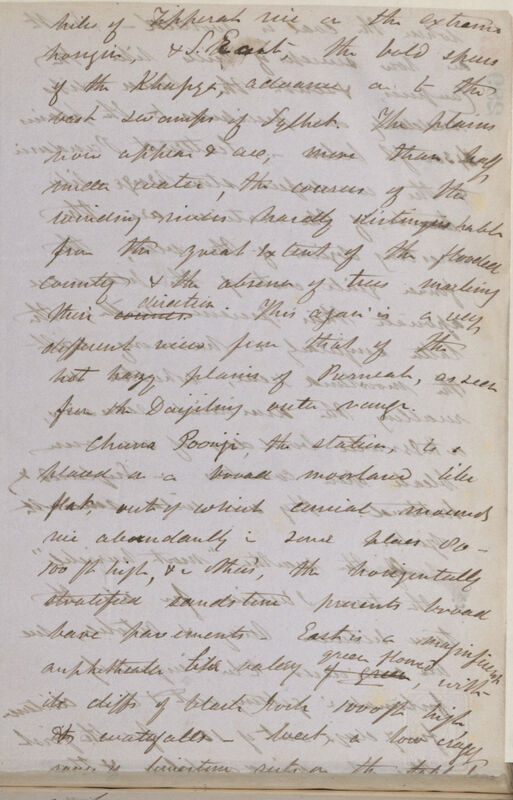 hills of Tipperah rise on the extreme
horizon, & S. East, the bold spurs
of the Khasya, advance on to the
vast swamps of Sylhet. The plains
now appear & are, more than half
under water, the courses of the
winding rivers hardly distinguishable
from the great extent of the flooded
country & the absence of trees marking
their courses direction. This again is a very
different view from that of the
hot hazy plains of Purneah, as seen
from the Darjiling outer range.
Churra Poonji, the station, is
placed on a broad moorland like
flat, out of which conical mounds
rise abundantly in some places 80-
100 ft high, & in others, the horizontally
stratified sandstone presents broad
bare pavements East is a magnificent
amphitheatre like valley of green green floored, with
its cliffs of black rock 1000 ft high
& waterfalls — West a low craggy
limestone on the